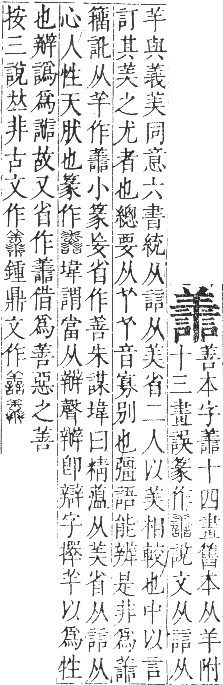 譱
善本字譱十四畫舊本从羊附
十三畫誤篆作譱說文从誩从
羊與義美同意六書統从誩从美省二人以美相較也中以言
訂其美之尤者也總要从丫丫音寡別也彊語能辨是非為譱
籀訛从羊作譱小篆妄省作善朱謀㙔曰精薀从美省从誩从
心人性天肰也篆作㙔謂當从辯聲辯卽辯字擇羊以為性
也辯譌為誩故又省作譱借為善惡之善
按三說𠀤非古文作鍾鼎文作